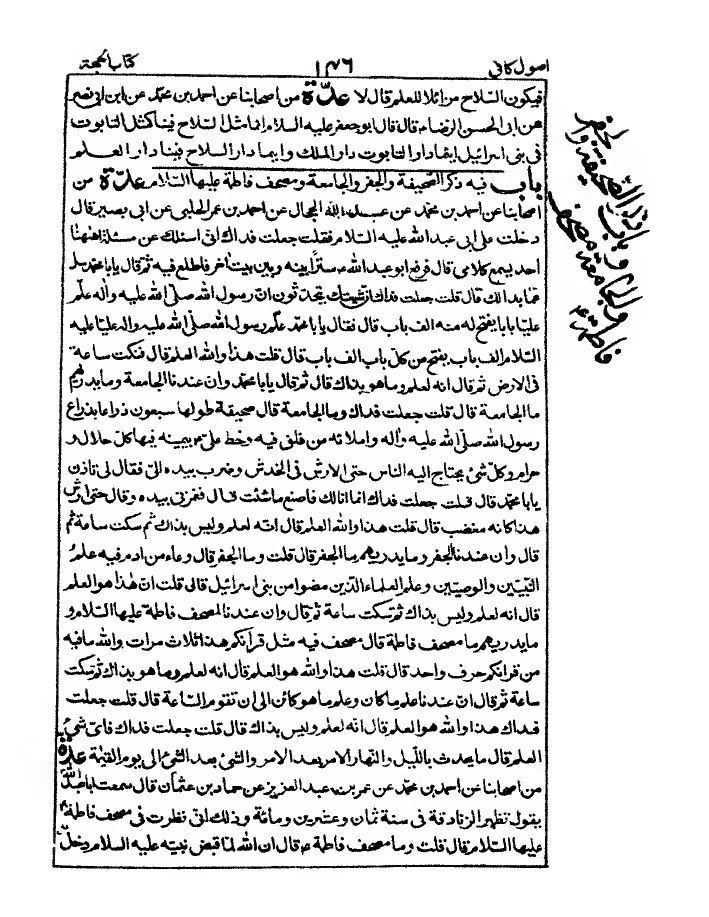 اصول كافى
١٤٦
كتاب الحجة
فيكون السّلاح مزائلا للعلم قال لا عدّة من اصحابنا عن احمد بن محمّد عن ابن ابى نصر
عن ابى الحسن الرضاء قال قال ابو جعفر عليه السلام انما مثل السّلاح فينا كمثل التابوت
فى بنى اسرائيل اينما دار التابوت دار الملك واينما دار السلاح فينا دار العلم
باب فيه ذكر الصّحيفة والجفر والجامعة ومصحف فاطمة عليها السّلام عدّة من
اصحابنا عن احمد بن محمّد عن عبد الله الحجال عن احمد بن عمر الحلبى عن ابى بصير قال
دخلت على ابى عبد الله عليه السّلام فقلت جعلت فداك انى اسئلك عن مسئلة اههنا
احد يسمع كلامى قال فرفع ابو عبد الله ء سترًا بينه وبين بيت اخر فاطلع فيه ثم قال يا با محمّد سل
عمّا بدا لك قال قلت جعلت فداك ان شيعتك يتحدّثون انّ رسول الله صلّى الله عليه واله علّم
عليّا بابا يفتح له منه الف باب قال فقال يا با محمّد علّم رسول الله صلّى الله عليه واله عليّا عليه
السّلام الف باب يفتح من كلّ باب الف باب قال قلت هذا والله العلم قال فنكت ساعة
فى الارض ثم قال انه لعلم وما هو بذاك قال ثم قال يا با محمّد وان عندنا الجامعة وما يدريهم
ما الجامعة قال قلت جعلت فداك وما الجامعة قال صحيفة طولها سبعون ذراعا بذراع
رسول الله صلّى الله عليه واله واملائه من فلق فيه وخط علىّ بيمينه فيها كلّ حلال و
حرام وكلّ شئ يحتاج اليه الناس حتى الارش فى الخدش وضرب بيده الىّ فقال لى تاذن
يا با محمّد قال قلت جعلت فداك انما انا لك فاصنع ما شئت قال فغمزنى بيده وقال حتى ارش
هذا كانه مغضب قال قلت هذا والله العلم قال انّه لعلم وليس بذاك ثم سكت ساعة ثم
قال وان عندنا الجفر وما يدريهم ما الجفر قال قلت وما الجفر قال وعاء من ادم فيه علم
النّبيّين والوصيّين وعلم العلماء الّذين مضوا من بنى اسرائيل قال قلت انّ هذا هو العلم
قال انه لعلم وليس بذاك ثم سكت ساعة ثم قال وان عندنا لمصحف فاطمة عليها السّلام و
ما يدريهم ما مصحف فاطمة قال مصحف فيه مثل قرآنكم هذا ثلاث مرات والله ما فيه
من قرانكم حرف واحد قال قلت هذا والله هو العلم قال انه لعلم وما هو بذاك ثم سكت
ساعة ثم قال انّ عندنا علم ما كان وعلم ما هو كائن الى ان تقوم السّاعة قال قلت جعلت
فداك هذا والله هو العلم قال انّه لعلم وليس بذاك قال قلت جعلت فداك فاىّ شئ
العلم قال ما يحدث باللّيل والنّهار الامر بعد الامر والشّئ بعد الشّئ الى يوم القيمة عدّة
من اصحابنا عن احمد بن محمّد عن عمر بن عبد العزيز عن حماد بن عثمان قال سمعت ابا عبد اللّه
يقول تظهر الزنادقة فى سنة ثمان وعشرين ومائة وذلك انّى نظرت فى مصحف فاطمة
عليها السّلام قال قلت وما مصحف فاطمة ء قال ان الله لمّا قبض نبيّه عليه السلام دخل